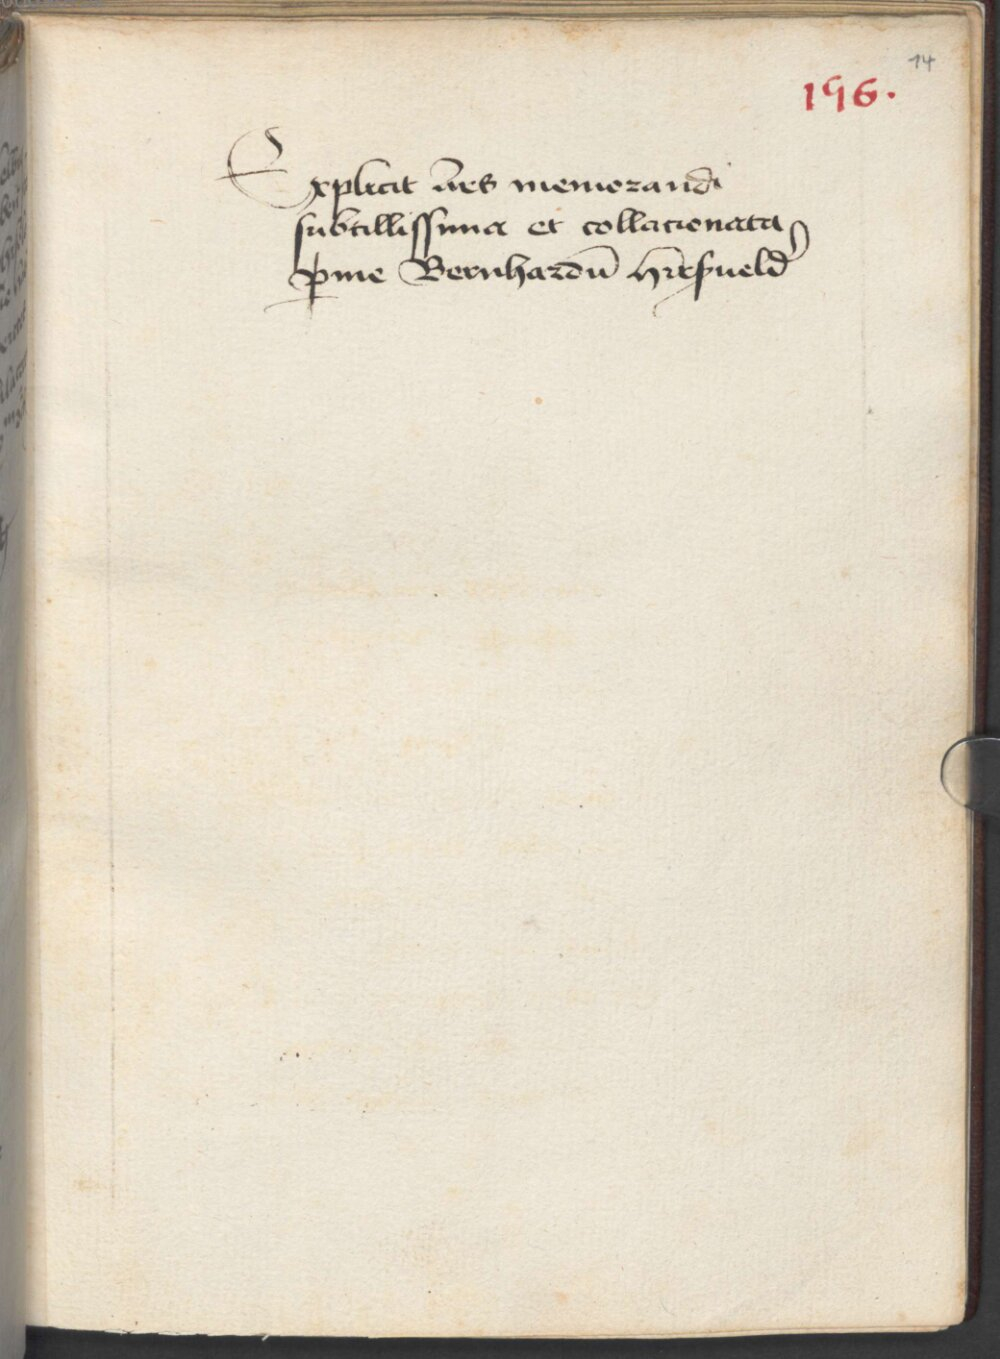 14
196.
Explicit ars memorandi
subtillissima et collacionata
p me Bernhardū hirsueld